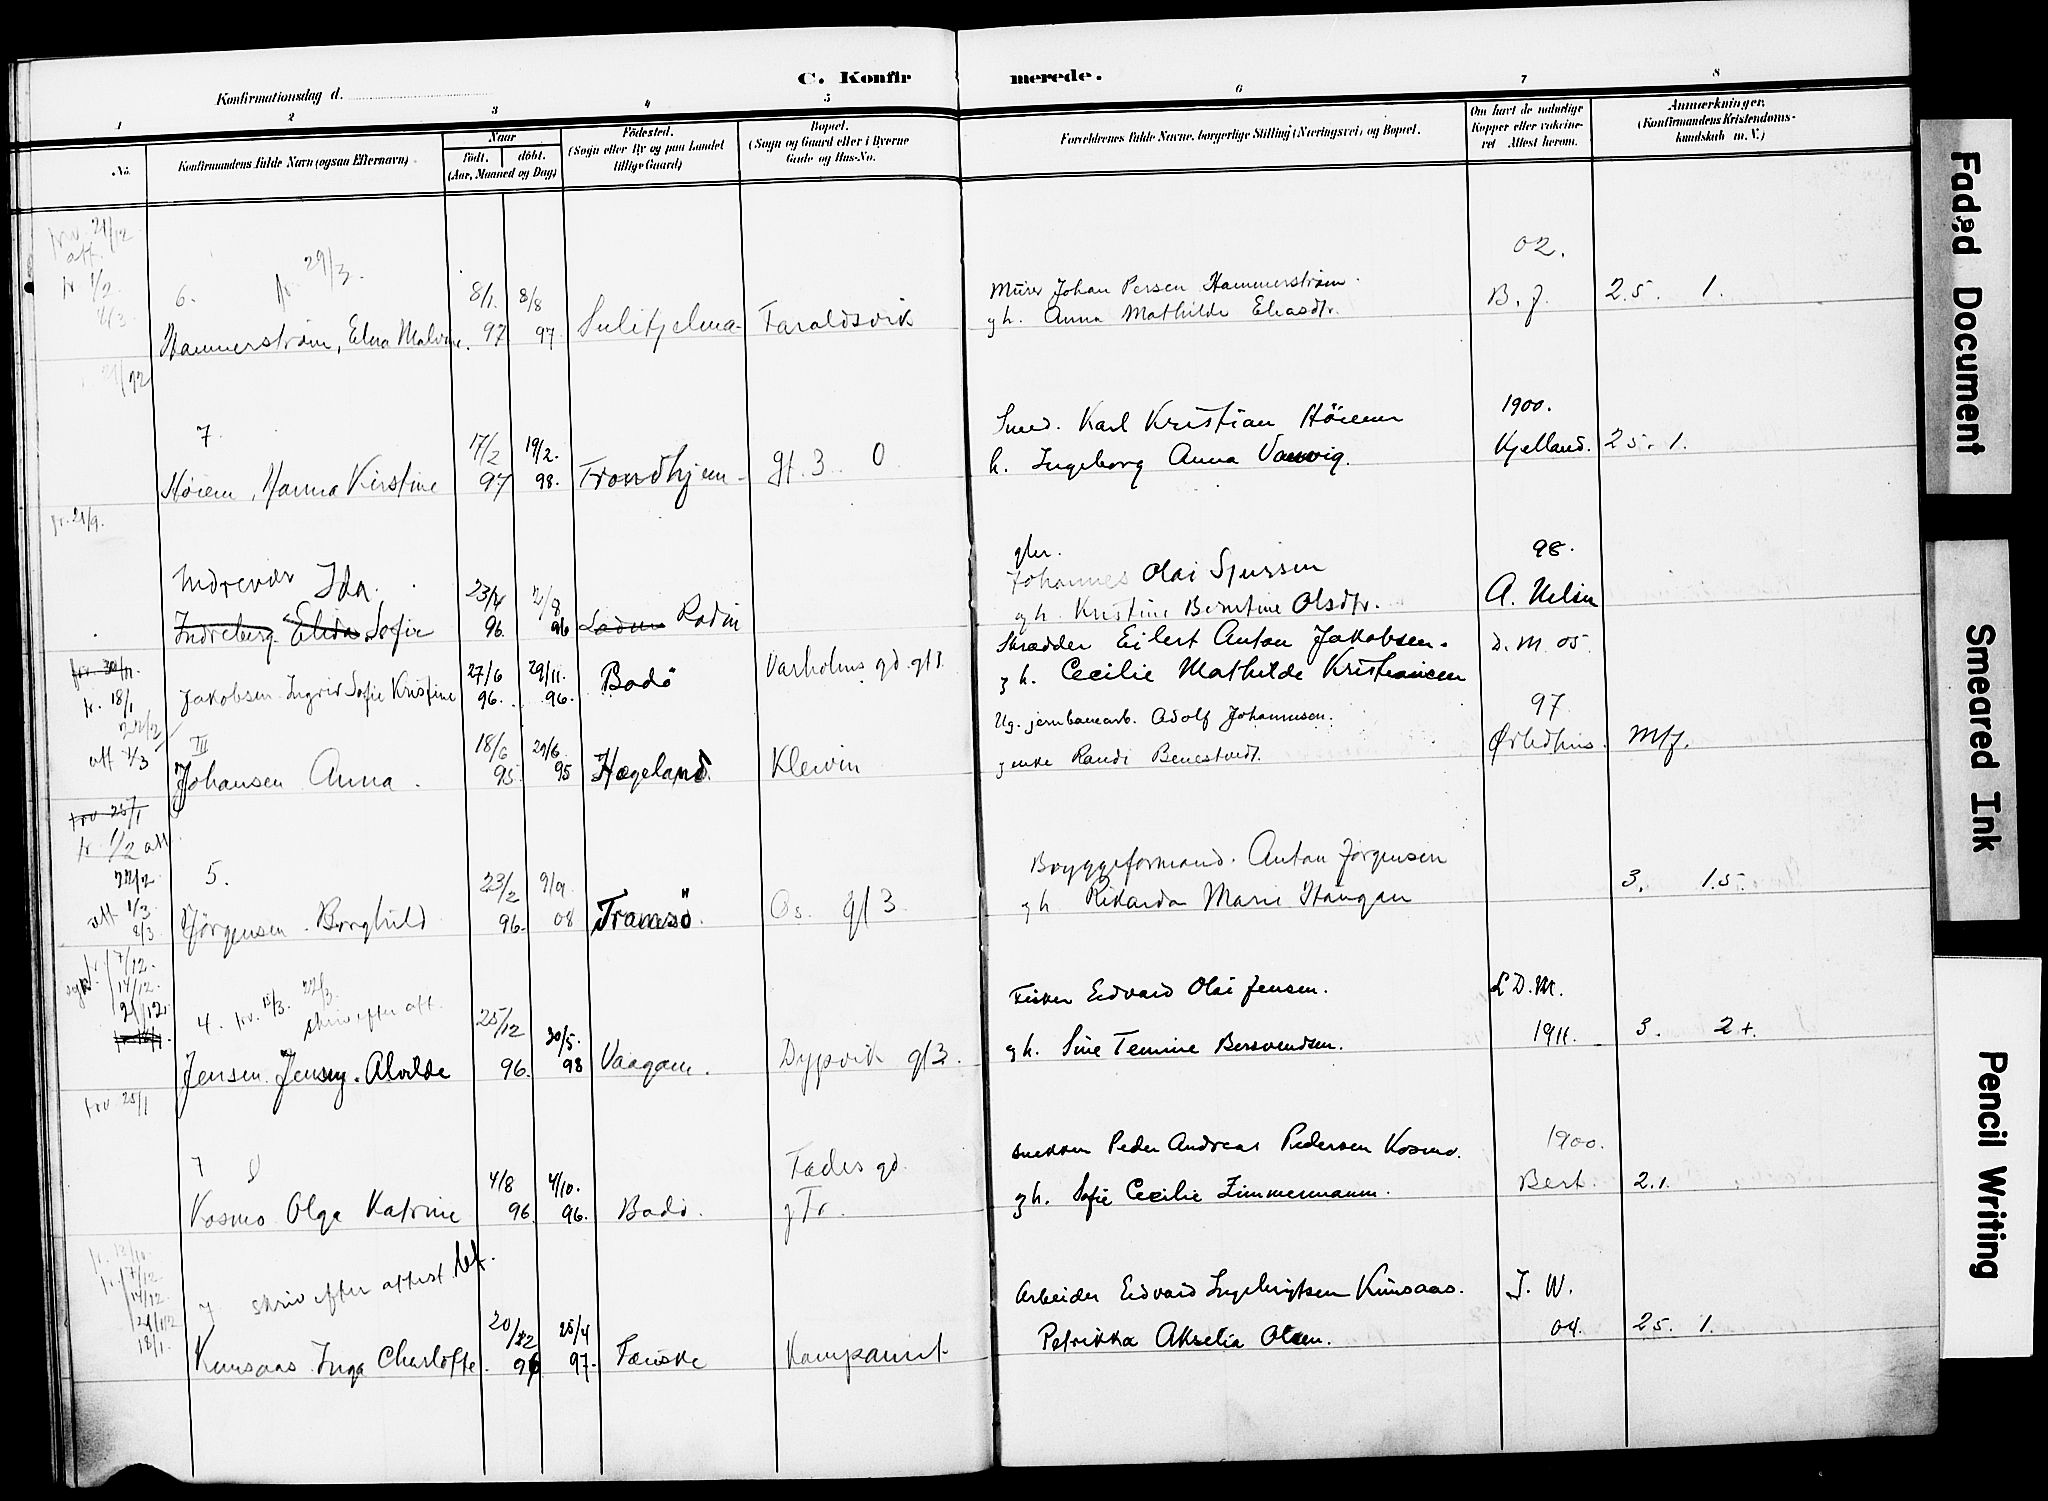 C. Konfirmerede.
Konfirmationsdag d.
1 2 3 4 5 6 7 8
No.
Konfirmandens fulde Navn (ogsaa Efternavn).
Naar
født. døbt.
(Aar, Maaned og Dag)
Fødested.
(Sogn eller By og paa Landet
tillige Gaard)
Bopæl.
(Sogn og Gaard eller i Byerne
Gade og Hus-No.
Forældrenes fulde Navne, borgerlige Stilling (Næringsvei) og Bopæl.
Om havt de naturlige
Kopper eller vakcine-
ret Attest herom.
Anmærkninger.
(Konfirmandens Kristendoms-
kundskab m. V.)
21/12
att.
fr. 29/3.
6. 8/1. 8/8 Murer Johan Persen Hammerstrøm. 02.
Hammerstrøm, Edna Malvine. 97 97. Sulitjelma Faraldsvik gh. Anna Mathilde Eliasdtr. B. J. 2.5. 1.
7 17/2 19/2. Smed. Karl Kristian Höiem 1900.
Höiem, Hanna Kirstine 97 98. Trondhjem gt. 3. O h. Ingeborg Anna Kjelland. 2 5. 1.
fr. 21/9.
Indrevær Ida. 23/4 2/8 Johannes Olai Sjursen 98.
Indreberg Elida Sofie 96. 96 Rødin gh. Kristine Berntine Olsdtr. A. Nelsen
fr. 30/11
fr. 18/1 27/6 29/11. Skrædder Eilert Anton Jakobsen. D. M. 05.
Jakobsen Ingrid Sofie Kristine 96. 96. Bodö Varholms gd. gt 1. gh. Cecilie Mathilde Kristiansen
22/2
att 1/3
III 18/6 29/6. Ug. jernbanearb. Adolf Johannesen. 97.
Johansen Anna. 95. 95 Hægeland. Klewin genke Randi Benestvedt. M/f.
25/1
fr. 1/2 att.
22/2
att 1/3
8/3
5. 23/2 9/9. Bryggeformand. Anton Jørgensen
Jörgensen Borghild 96. 08 Tromsö. Os. gt 3 gh Rikarda Marie Haugan 3. 1.5.
7/12.
14/12.
21/12.
4. frv. 15/3. 22/3. skriv efter att. 25/12 20/5. Fisker Edvard Olai Jensen. L D. M.
Jensen Jenny Alvilde 96. 98 Vaagan. Dypvik gt 3. gh. Sine Temine Bersvendsen. 1911. 3. 2+.
frv 25/1
7 4/8 4/10. Fædes gd. Snekker Peder Andreas Pedersen Kosmo. 1900.
Kosmo Olga Katrine 96. 96. Bodö. gh. Sofie Cecilie Zimmermann. Bert. 2.1.
fr. 7/12
14/12
21/12
18/1.
7 skriv efter attest. 20/12 25/4 Arbeider Edvard Ingebrigtsen Kunsaas. J. W.
Kunsaas Inga Charlotte. 96 97. Fauske Petrikka Akselia Olsen. 04. 2 5. 1.
Faded Document
Smeared Ink
Pencil Writing